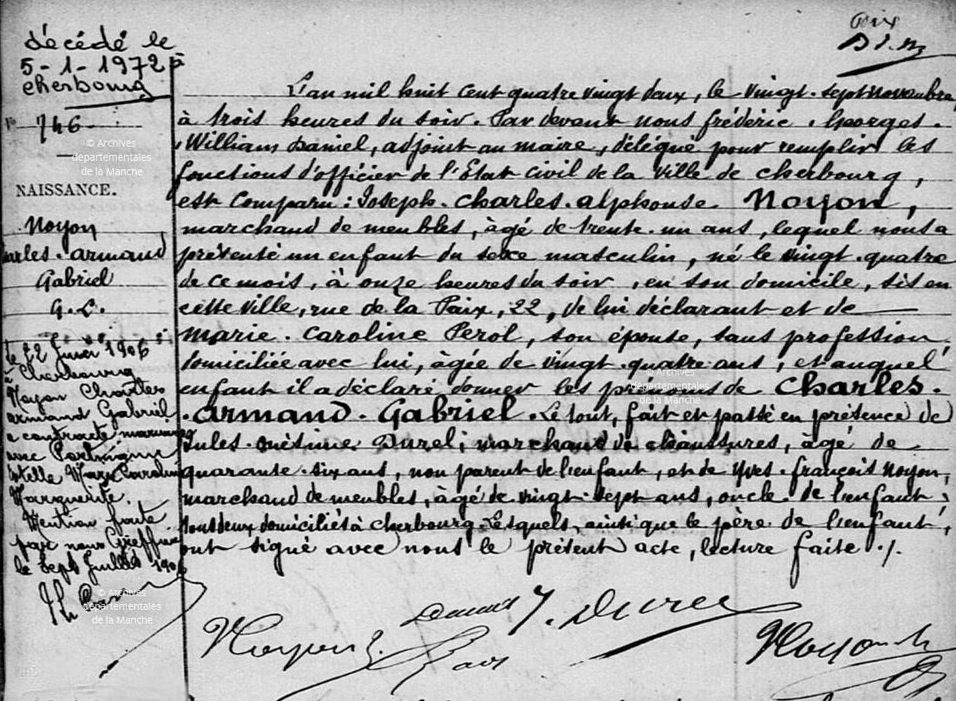 décédé le
5-1-1972 à
cherbourg
746
NAISSANCE.
Noyon
Charles. armand
Gabriel
G. L.
le 22 Juin 1906
à Cherbourg
Noyon Charles
armand Gabriel
a contracté mariage
avec
Marguerite.
Mention faite
par nous Greffier
le Sept Juillet 1906
L'an mil huit cent quatre vingt deux, le vingt. sept Novembre
à trois heures du soir. Par devant nous frédéric. Georges.
William Daniel, adjoint au maire, délégué pour remplir les
fonctions d'officier de l'Etat Civil de la ville de cherbourg,
est Comparu: Joseph. charles. alphonse Noyon,
marchand de meubles, âgé de trente. un ans, lequel nous a
présenté un enfant du sexe masculin, né le vingt. quatre
de ce mois, à onze heures du soir, en son domicile, sis en
cette ville, rue de la Paix, 22, de lui déclarant et de
Marie. Caroline Perol, son épouse, sans profession
domiciliée avec lui, âgée de vingt. quatre ans, et auquel
enfant il a déclaré donner les prénoms de Charles.
. armand. Gabriel. Le tout, fait et passé en présence de
Jules. onésime Durel, marchand de chaussures, âgé de
quarante. six ans, non parent de l'enfant, et de Yves. françois Noyon,
marchand de meubles, âgé de vingt. sept ans, oncle de l'enfant;
tous deux domiciliés à cherbourg. Lesquels, ainsi que le père de l'enfant,
ont signé avec nous le présent acte, lecture faite ./.
J. Durel
Noyon
Noyon
© Archives
départementales
de la Manche
© Archives
départementales
de la Manche
© Archives
départementales
de la Manche